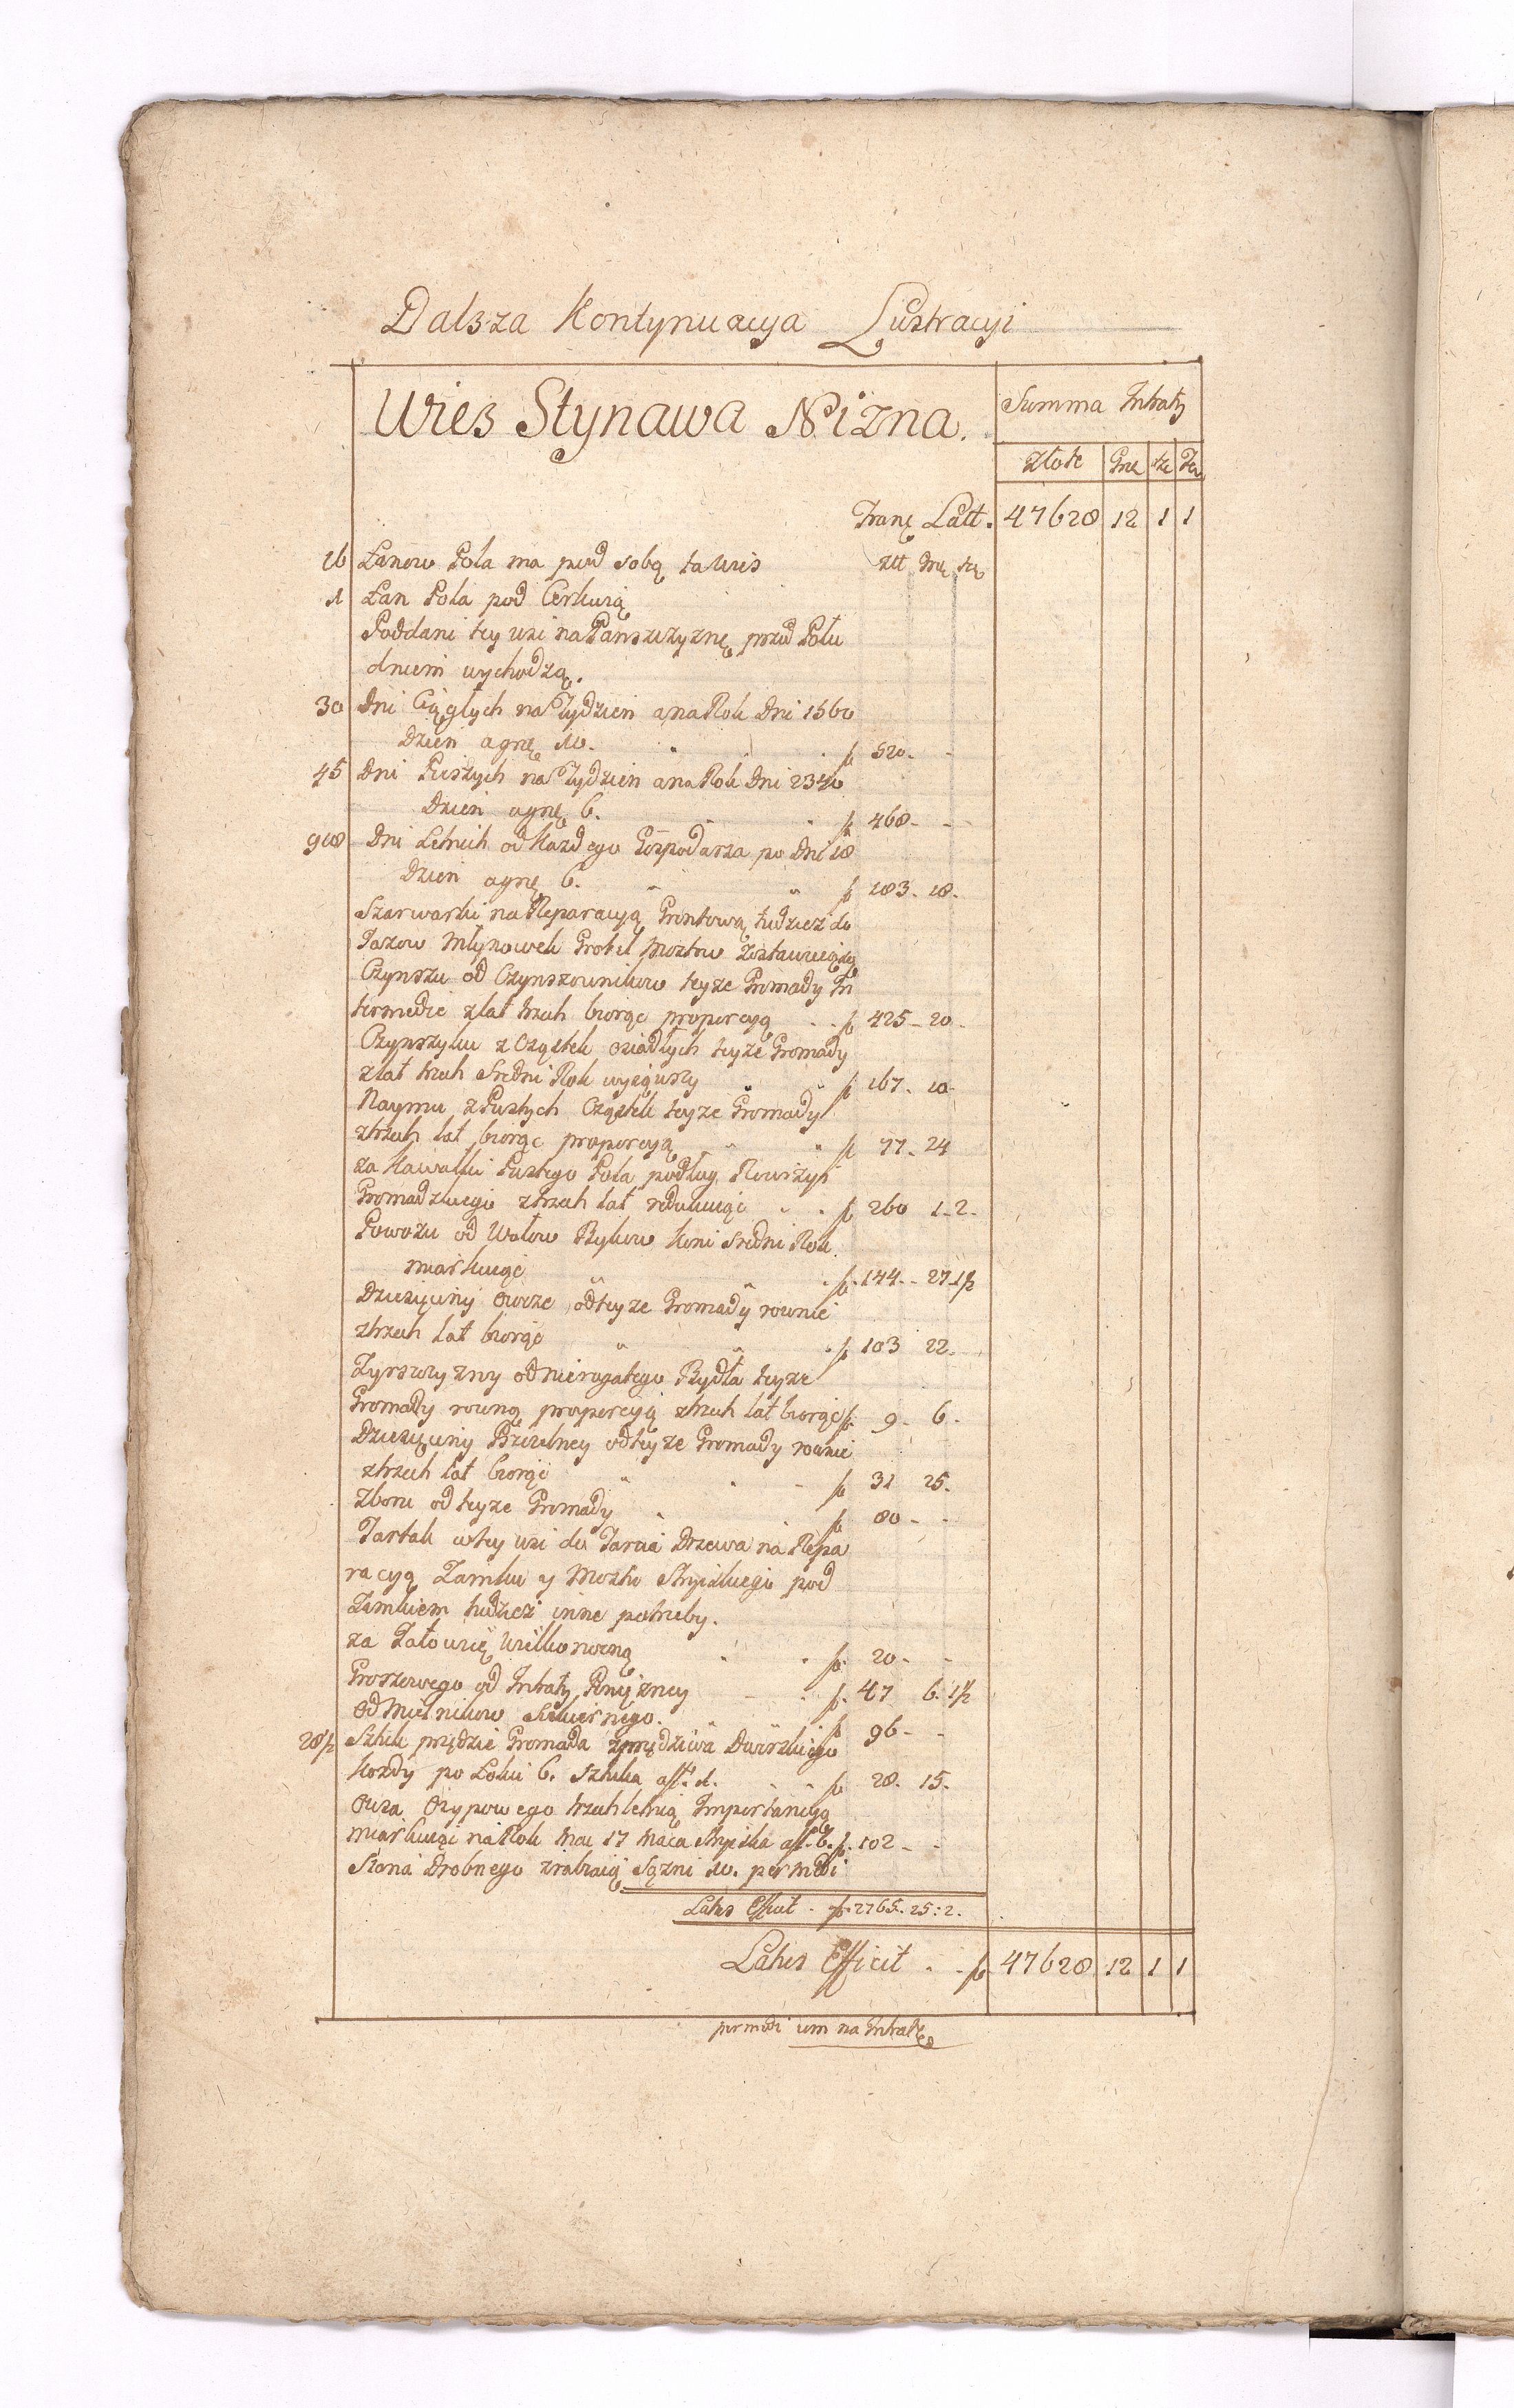 Dalsza Kontynuacya Lustracyi
Wies Stynawa Nizna.
Summa Intraty
Złote Gre
Latt. 47628 12 1 1
16 Łanow Pola ma pod sobą ta wies
1 Łan Pola pod Cerkwią
Poddani tey wsi na Panszczyznę przed Połu
dniem wychodzą.
30 Dni Ciągłych na Tydzien a na Rok Dni 1560
Dzien a grę 10. f 520. -
45 Dni Pieszych na Tydzien a na Rok Dni 2340
Dzien a grę 6. f 468 - -
918 Dni Letnich od Kazdego Gospodarza po Dni 18
Dzien a grę 6. f 183. 18.
Szarwarki na Reparacyą Grontową tudziesz do
Młynowek Grobel Mostow
Czynszu od Czynszownikow teyze Gromady In
termedie z lat trzech biorąc proporcyą f 425 - 20.
Czynszyku z Cząstek osiadłych teyze Gromady
z lat trzech Sredni Rok f 167. 10.
Naymu z Pustych Cząstek teyze Gromady
z trzech lat biorąc proporcyą f 77. 24
za Kawałki Pustego Pola podług
Gromadzkiego z trzech lat redukuiąc f 260 1. 2.
Powozu od Wołow Bykow Koni Sredni Rok
miarkuiąc f. 144. - 27. 1½
Dziesięciny Owcze od teyze Gromady rownie
z trzech lat biorąc f 103 22.
od nierogatego Bydła teyze
Gromady rowną proporcyą z trzech lat biorąc f. 9 - 6.
Dziesięciny Pszczelney od teyze Gromady rownie
z trzech lat biorąc f 31 25.
Zboru od teyze Gromady f 80 - -
Tartak w tey wsi do Tarcia Drzewa na Repa
racyą Zamku y Mostu Stryiskiego pod
Zamkiem tudziesz inne potrzeby.
za Jałowię Wielkonocną f. 20 - -
Groszowego od Intraty Pienięzney f. 47 6. 1½
Od Mielnikow Siekiernego. f 96 - -
28½ Sztuk przędzie Gromada z przędziwa Dworskiego
Kozdy po Łokci 6. sztuka a ff. 1. f 28. 15.
Owsa Osypowego trzechletnią Importancyą
miarkuiąc na Rok Mac 17 Maca Stryiska a ff. 6. f. 102 - -
Siana Drobnego zrabiaią Sązni 10. per modi
Latus Efficit - f. 2765. 25: 2.
Latus Efficit . . f 47628 12 1 1
per modi um na Intratę